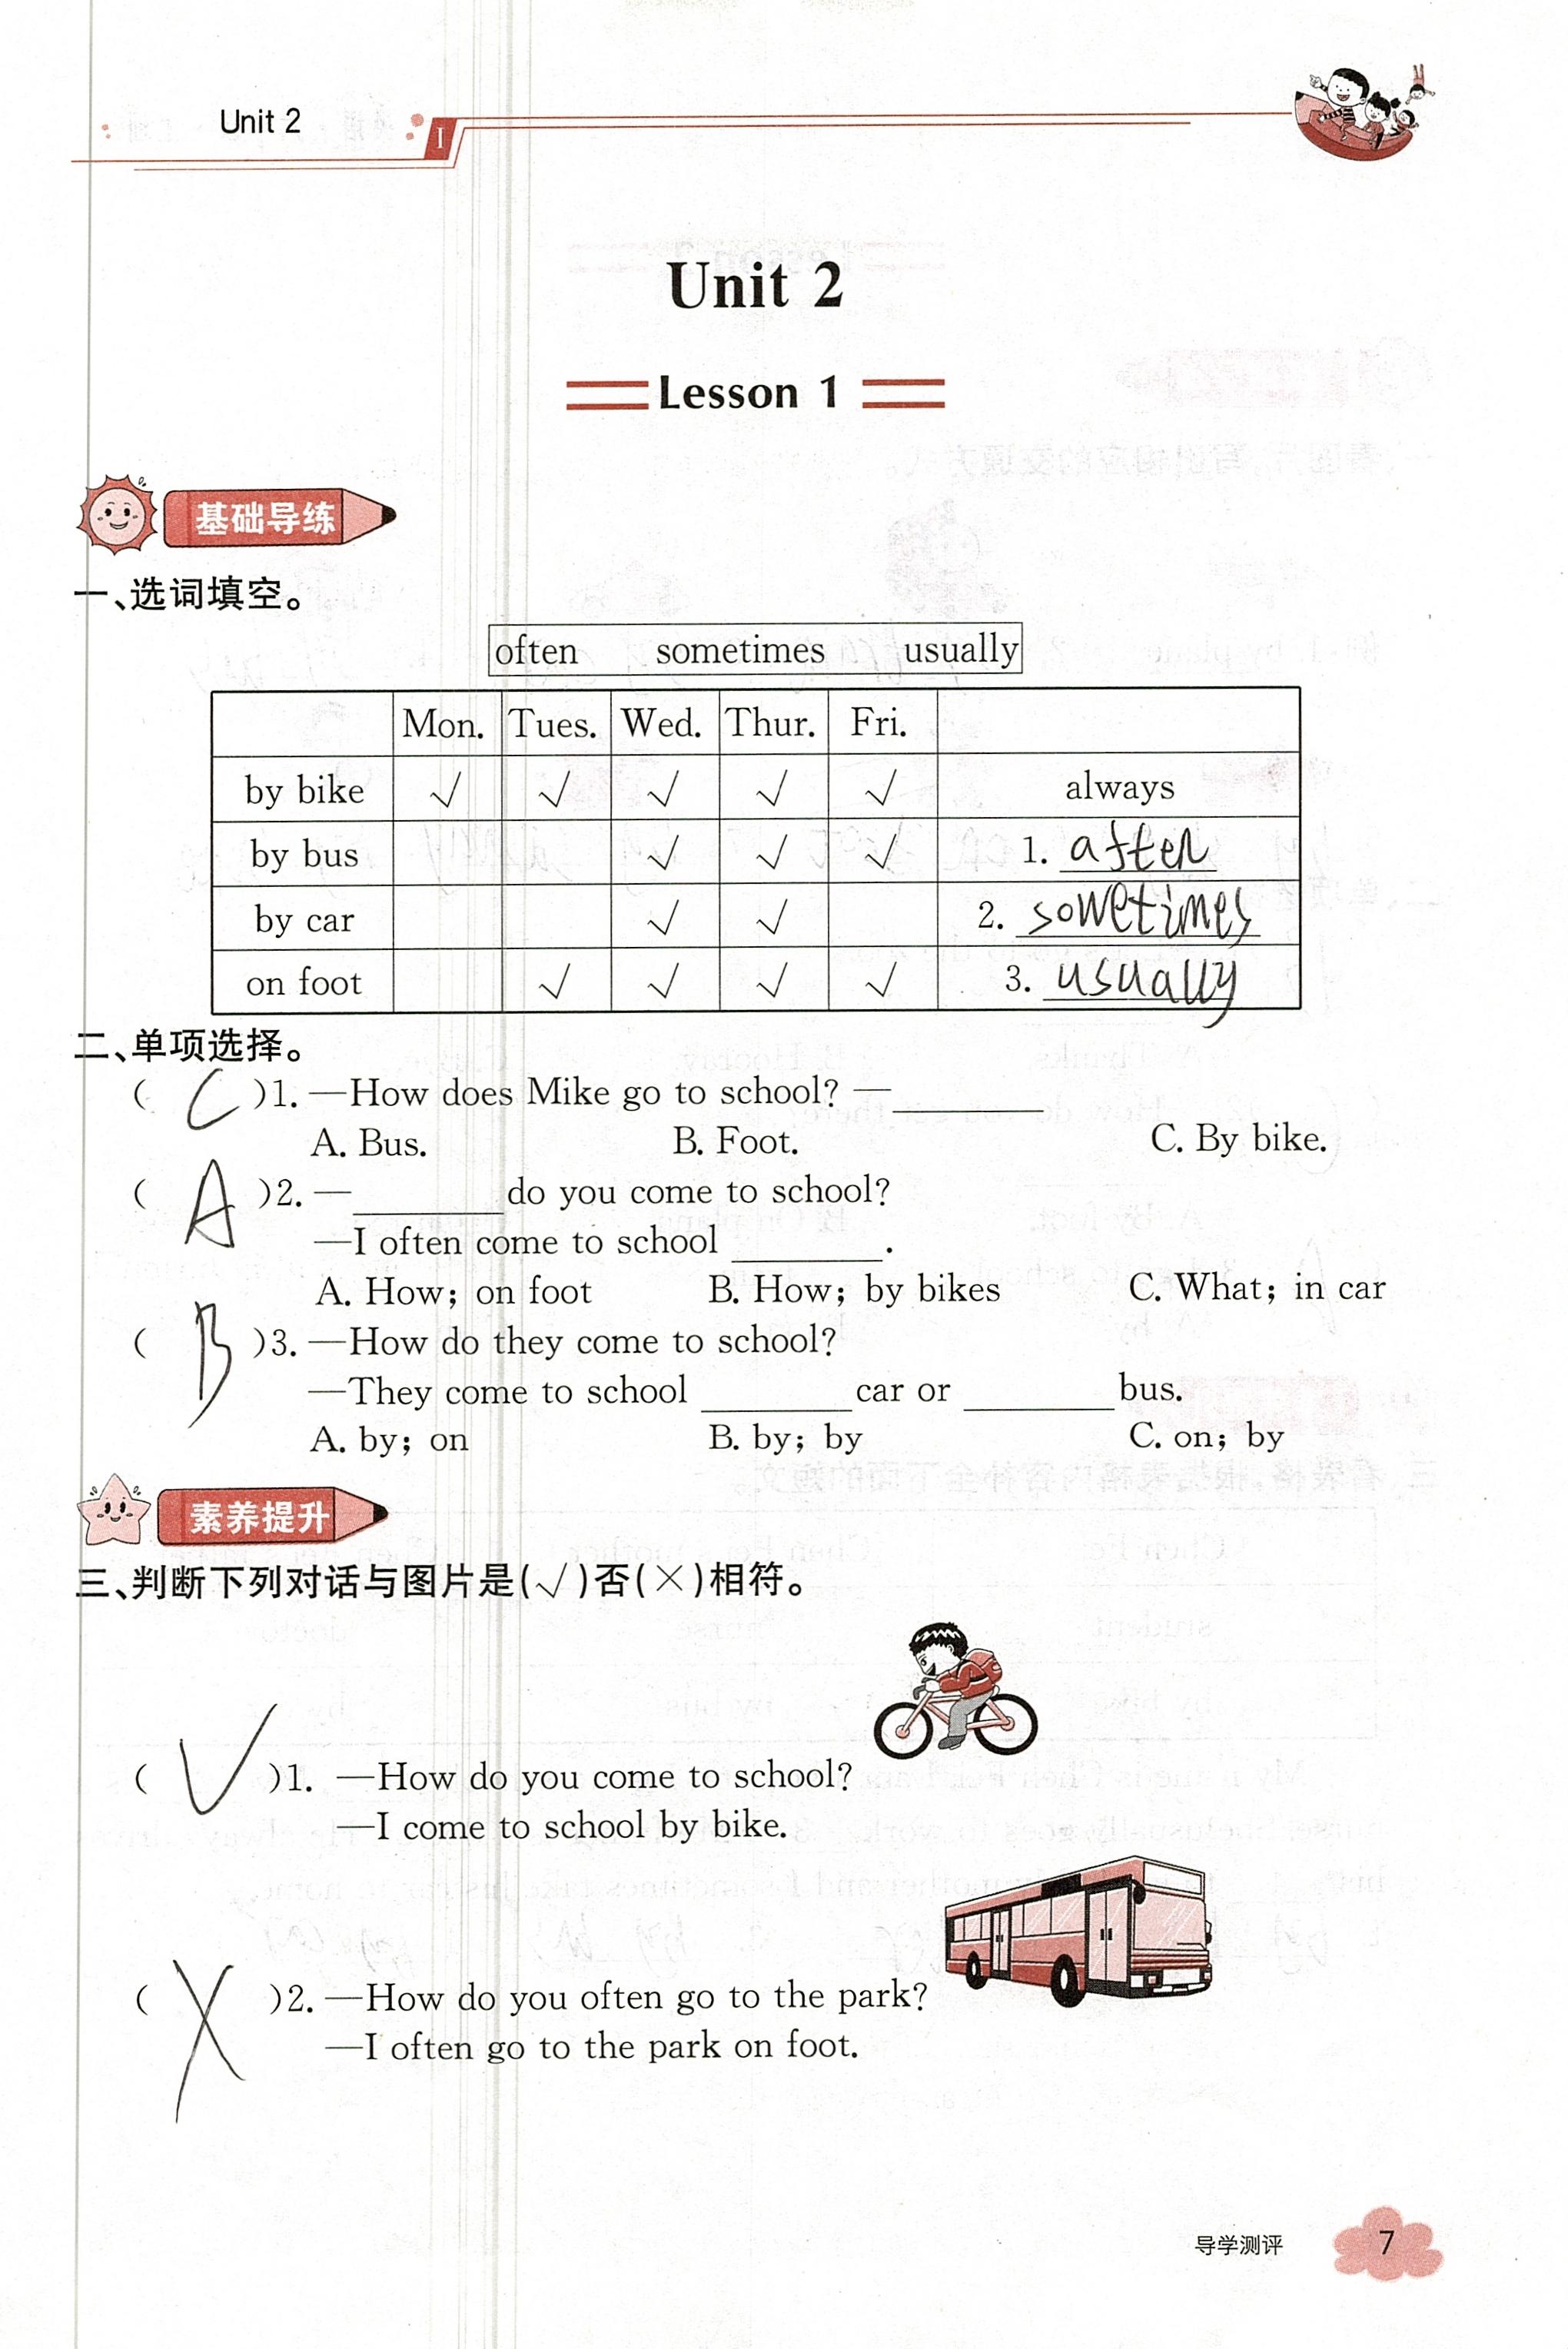 Unit 2
I
Unit 2
Lesson 1
基础导练
一、选词填空。
often sometimes usually
Mon. Tues. Wed. Thur. Fri.
by bike √ √ √ √ √ always
by bus √ √ √ 1. aften
by car √ √ 2. sowetimes
on foot √ √ √ √ 3. usually
二、单项选择。
( C )1. —How does Mike go to school? —______
A. Bus. B. Foot. C. By bike.
( A )2. —______do you come to school?
—I often come to school ______.
A. How; on foot B. How; by bikes C. What; in car
( B )3. —How do they come to school?
—They come to school ______ car or ______ bus.
A. by; on B. by; by C. on; by
素养提升
三、判断下列对话与图片是(√)否(×)相符。
( √ )1. —How do you come to school?
—I come to school by bike.
( × )2. —How do you often go to the park?
—I often go to the park on foot.
导学测评 7